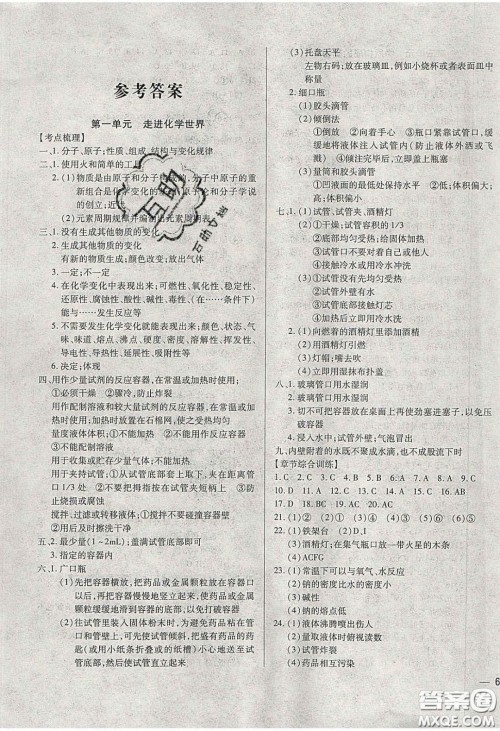 参考答案
第一单元 走进化学世界
【考点梳理】
一、1. 分子、原子；性质、组成、结构与变化规律
2. (1) 物质是由原子和分子构成的，分子中原子的重
新组合是化学变化的基础
(2) 元素周期律并编制出元素周期表
二、1. 没有生成其他物质的变化
2. 生成其他物质的变化
有新物质生成 颜色改变；放出气体
3. 一定；不一定
4. 在化学变化中表现出来；可燃性、稳定性、氧化性、
还原性、腐蚀性、酸性、碱性、毒性、(在……条件下)
能与……发生反应等
5. 不需要发生化学变化就表现出来；颜色、状态、气
味、味道、熔点、沸点、硬度、密度、溶解性、挥发性、
导电性、导热性、延展性等
6. 决定；体现
四、用作少量试剂的反应容器，在常温或加热时使用：
①必须干燥 ②骤冷，防止炸裂
用作配制溶液和较大量试剂的反应容器，在常温或
加热时使用，加热时放置在石棉网，使受热均匀
量度液体体积：①不能加热 ②不能作反应容器
①不能加热
用于收集或贮存少量气体 ①不能加热
用于夹持试管①从试管底部套上取下，夹在距试管
口1/3处 ②不要把拇指按在夹的短柄上 ③防止烧
损或腐蚀
搅拌、过滤或转移液体：搅拌时不能碰撞容器壁
①用后立即冲洗干净 ②滴加时不要接触容器壁
五、2. 最少量(1~2mL)；盖满试管底部即可
3. 指定的容器内
六、1. 广口瓶
(1) 先把容器横放，把药品或金属颗粒放在容器口
以后，再把容器慢慢地竖立起来，使药品或金属
颗粒缓缓地滑到容器的底部，以免打破容器
(2) 往试管里装入固体粉末时，为避免药品沾在管
口和管壁上，可先使试管倾斜，把盛有药品的药
匙(或用小纸条折叠成的纸槽)小心地送至试管
底部，然后使试管直立起来
(3) 托盘天平
左物右码；放在玻璃皿，例如小烧杯或者表面皿中
称量
2. 细口瓶
(1) 胶头滴管
(2) 倾倒法
①倒放 ②外面 ③瓶口紧靠试管口，缓
缓地将液体倒入试管内(防止液体外洒或飞
溅) ④倾注完毕后，立刻盖上瓶塞
(3) 量筒和胶头滴管
①凹液面的最低处保持水平 ②低；体积偏大；
高；体积偏小
七、1. (1) 试管、试管夹、酒精灯
(2) ①干燥；试管容积的1/3
②底部均匀受热；给固体加热
③试管口不要对着人
④接触冷水或用冷水冲洗
(3) ①试管外壁有水
②试管底部接触灯芯
③加热后立即用冷水冲洗
2. (1) 向燃着的酒精灯里添加酒精
(2) 用酒精灯引燃
(3) 灯帽；嘴去吹
(4) 立即用湿抹布扑盖
八、1. 玻璃管口用水湿润
2. 玻璃管口用水湿润
3. 切不可把容器放在桌面上再使劲塞进塞子，以免压
破容器
4. 浸入水中；试管外壁；气泡冒出
九、内壁附着的水既不聚成水滴，也不成股流下时
【章节综合训练】
21. (1) ②④ (2) ①③
22. (1) 铁架台 (2) ④①③②
(3) 酒精灯；在集气瓶口放一带火星的木条
(4) ACFG
23. (1) 常温下可以与氧气、水反应
(2) 钠的硬度小
(3) 碱性
(4) 钠的熔点低
24. (1) 液体沸腾喷出伤人
(2) 量取液体时俯视读数
(3) 试管破裂
(4) 药品相互污染
— 6
互助
答案圈
MXQE.COM